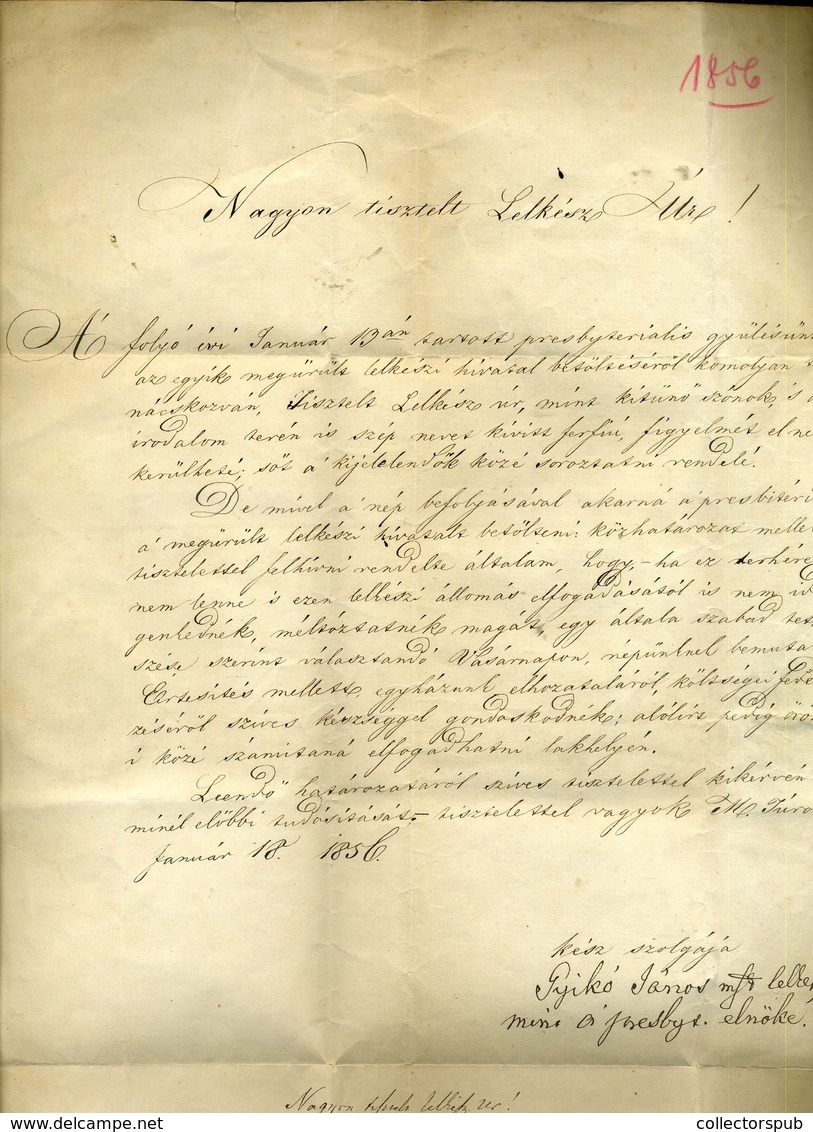 1856
Nagyon tisztelt Lelkész Úr!
A folyó évi Január 13án tartott presbyterialis gyülésün
az egyik megürült lelkészi hivatal betöltéséről komolyan t
nácskozván, Tisztelt Lelkész úr, mint kitünő szónok, 's a
irodalom terén is szép nevet kivitt ferfiú, figyelmét el ne
kerülheté; sőt a' kijelelendők közé soroztatni rendelé.
De mivel a' nép befolyásával akarná a' presbitéri
a' megürült lelkészi hivatalt betölteni: közhatározat melle
tisztelettel felhivni rendelte általam, hogy,- ha ez terhére
nem lenne 's ezen lelkészi állomás elfogadásától is nem id
genkednék, méltóztatnék magát, egy általa szabad tet
szése szerint választandó Vasárnapon, népünknek bemuta
Értesités mellett, egyházunk elhozataláról, költségei fede
zéséről szives készséggel gondoskodnék; alólirt pedig örö
i közé számitaná elfogadhatni lakhelyén.
Leendő határozatáról szives tisztelettel kikérvén
minél előbbi tudósitását,- tisztelettel vagyok M. Túro
Január 18. 1856.
kész szolgája
Gyikó János mk lelké
mint a' presbyt. elnöke.
Nagyon tisztelt lelkész ur!
collectorspub